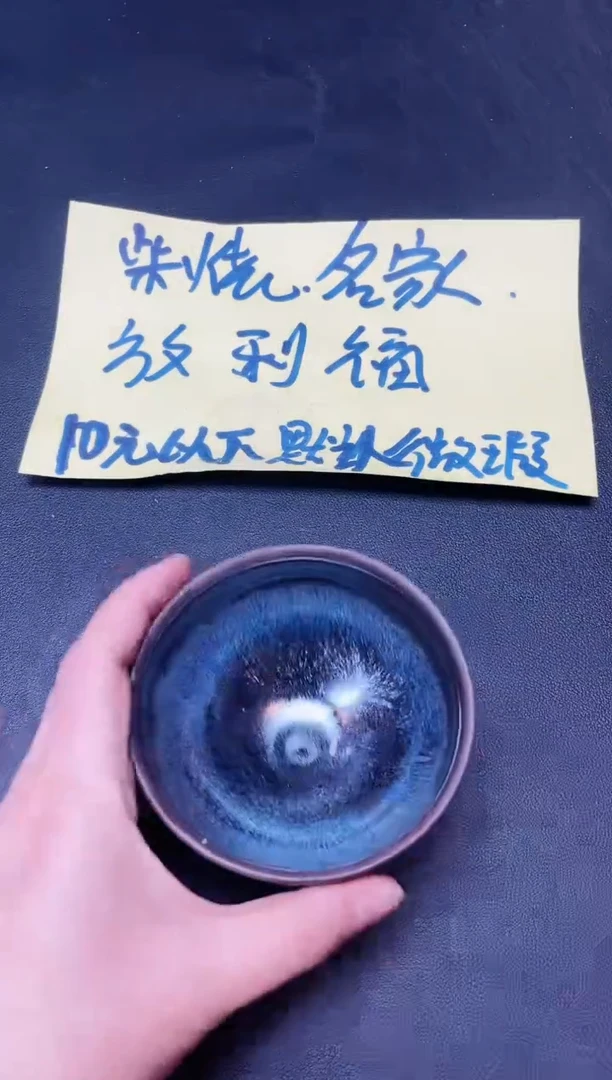 柴烧.名家.
放利福
10元以下默认微瑕